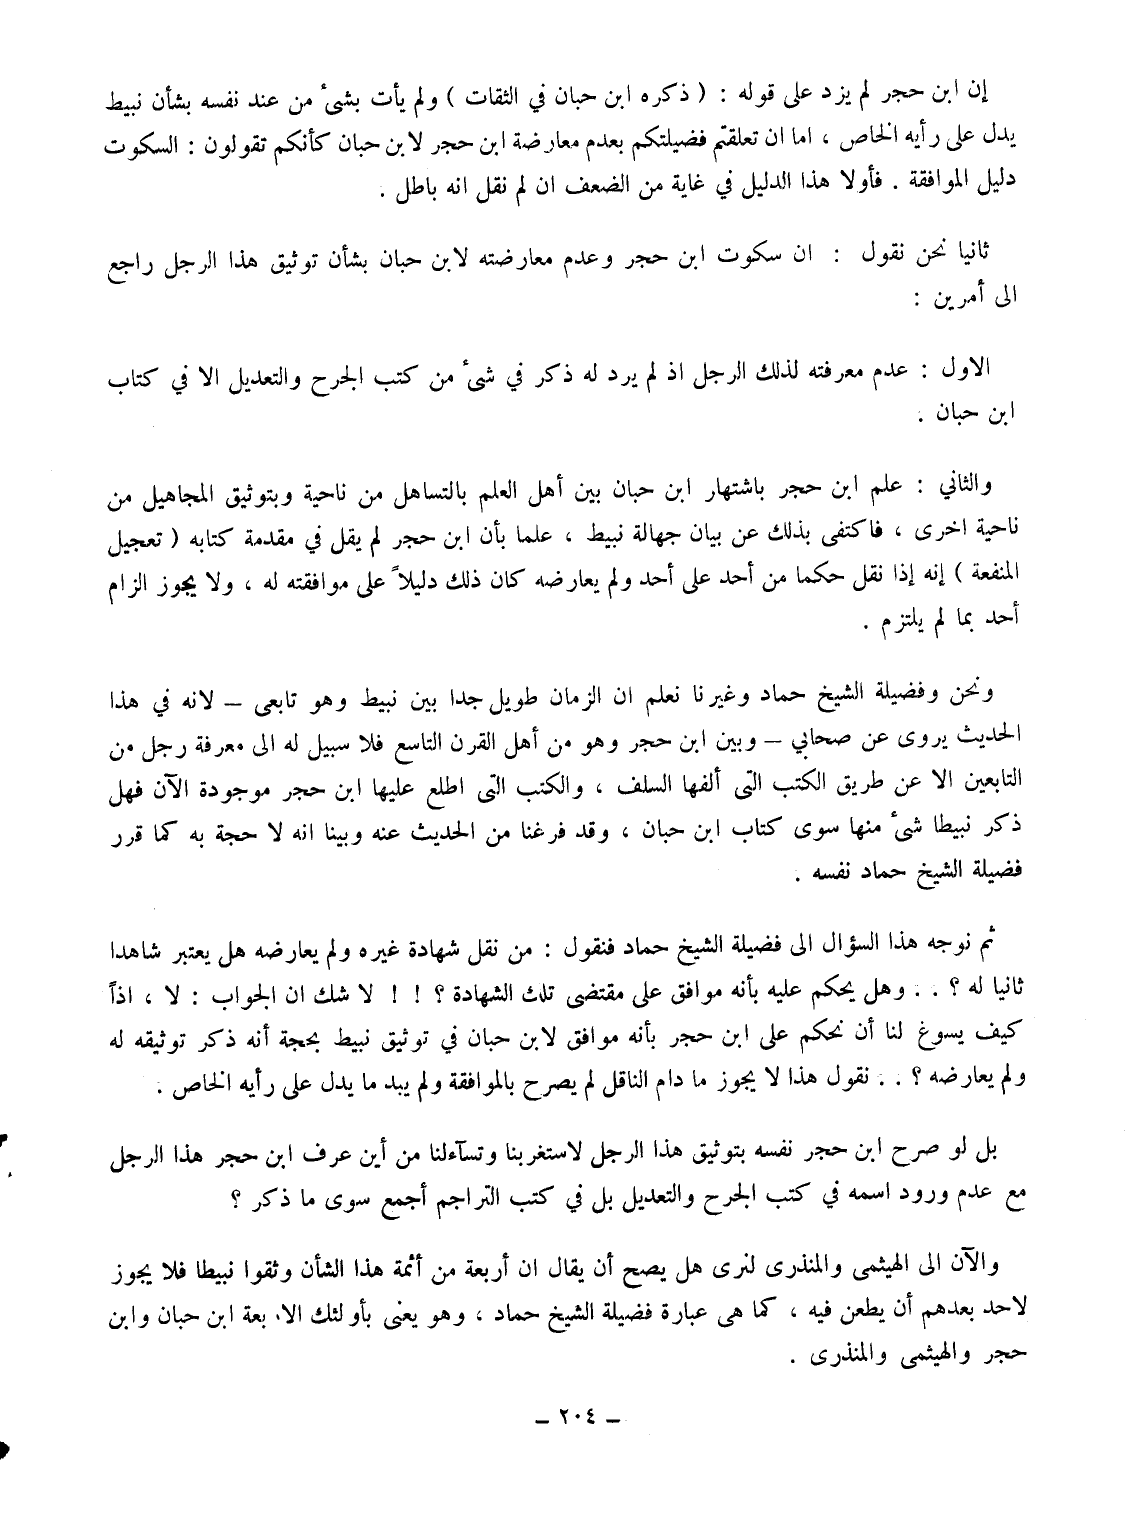 إن ابن حجر لم يزد على قوله : ( ذكره ابن حبان في الثقات ) ولم يأت بشىٔ من عند نفسه بشأن نبيط
يدل على رأيه الخاص ، اما ان تعلقتم فضيلتكم بعدم معارضة ابن حجر لابن حبان كأنكم تقولون : السكوت
دليل الموافقة . فأولا هذا الدليل في غاية من الضعف ان لم نقل انه باطل .
ثانيا نحن نقول : ان سكوت ابن حجر وعدم معارضته لابن حبان بشأن توثيق هذا الرجل راجع
الى أمرين :
الاول : عدم معرفته لذلك الرجل اذ لم يرد له ذكر في شىٔ من كتب الجرح والتعديل الا في كتاب
ابن حبان .
والثاني : علم ابن حجر باشتهار ابن حبان بين أهل العلم بالتساهل من ناحية وبتوثيق المجاهيل من
ناحية اخرى ، فاكتفى بذلك عن بيان جهالة نبيط ، علما بأن ابن حجر لم يقل في مقدمة كتابه ( تعجيل
المنفعة ) إنه إذا نقل حكما من أحد على أحد ولم يعارضه كان ذلك دليلاً على موافقته له ، ولا يجوز الزام
أحد بما لم يلتزم .
ونحن وفضيلة الشيخ حماد وغيرنا نعلم ان الزمان طويل جدا بين نبيط وهو تابعى – لانه في هذا
الحديث يروى عن صحابي – وبين ابن حجر وهو من أهل القرن التاسع فلا سبيل له الى معرفة رجل من
التابعين الا عن طريق الكتب التى ألفها السلف ، والكتب التى اطلع عليها ابن حجر موجودة الآن فهل
ذكر نبيطا شىٔ منها سوى كتاب ابن حبان ، وقد فرغنا من الحديث عنه وبينا انه لا حجة به كما قرر
فضيلة الشيخ حماد نفسه .
ثم نوجه هذا السؤال الى فضيلة الشيخ حماد فنقول : من نقل شهادة غيره ولم يعارضه هل يعتبر شاهدا
ثانيا له ؟ . . وهل يحكم عليه بأنه موافق على مقتضى تلك الشهادة ؟ ! ! لا شك ان الجواب : لا ، اذاً
كيف يسوغ لنا أن نحكم على ابن حجر بأنه موافق لابن حبان في توثيق نبيط بحجة أنه ذكر توثيقه له
ولم يعارضه ؟ . . نقول هذا لا يجوز ما دام الناقل لم يصرح بالموافقة ولم يبد ما يدل على رأيه الخاص .
بل لو صرح ابن حجر نفسه بتوثيق هذا الرجل لاستغربنا وتسآءلنا من أين عرف ابن حجر هذا الرجل
مع عدم ورود اسمه في كتب الجرح والتعديل بل في كتب التراجم أجمع سوى ما ذكر ؟
والآن الى الهيثمى والمنذرى لنرى هل يصح أن يقال ان أربعة من أئمة هذا الشأن وثقوا نبيطا فلا يجوز
لاحد بعدهم أن يطعن فيه ، كما هى عبارة فضيلة الشيخ حماد ، وهو يعنى بأولئك ابن حبان وابن
حجر والهيثمى والمنذرى .
– ٢٠٤ –